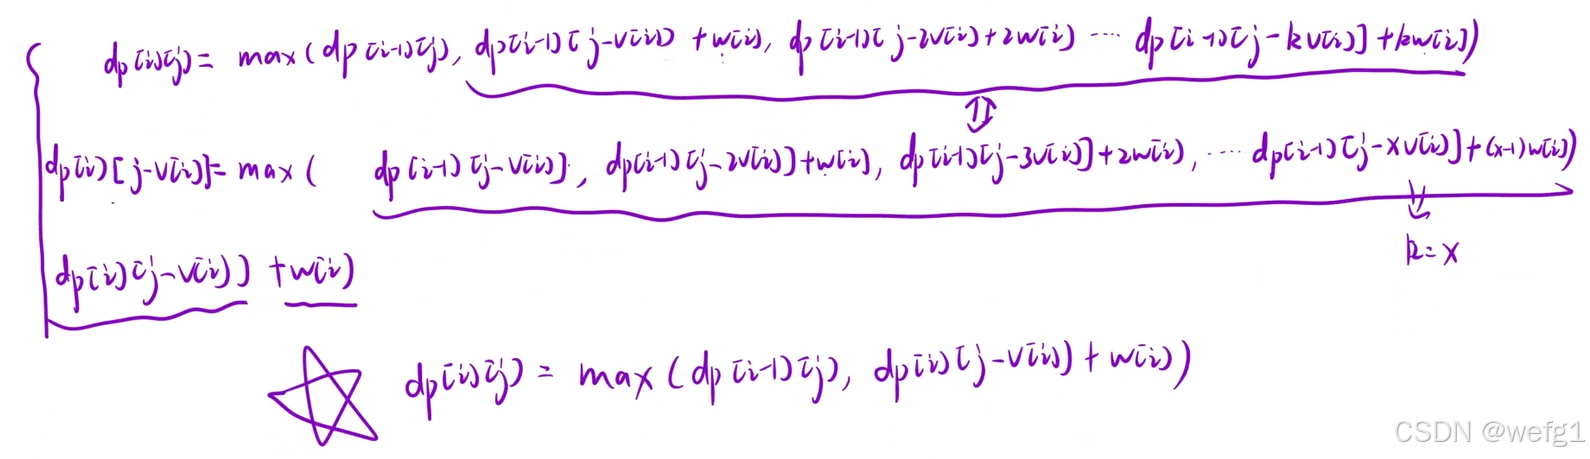 dp[i][j] = max(dp[i-1][j], dp[i-1][j-v[i]) + w[i], dp[i-1][j-2v[i]+2w[i] ... dp[i-1][j-kv[i]]+kw[i])
dp[i][j-v[i]] = max( dp[i-1][j-v[i]], dp[i-1][j-2v[i]]+w[i], dp[i-1][j-3v[i]]+2w[i], ... dp[i-1][j-xv[i]]+(x-1)w[i])
k=x
dp[i][j-v[i]] + w[i]
dp[i][j] = max(dp[i-1][j], dp[i][j-v[i]] + w[i])
CSDN @wefg1